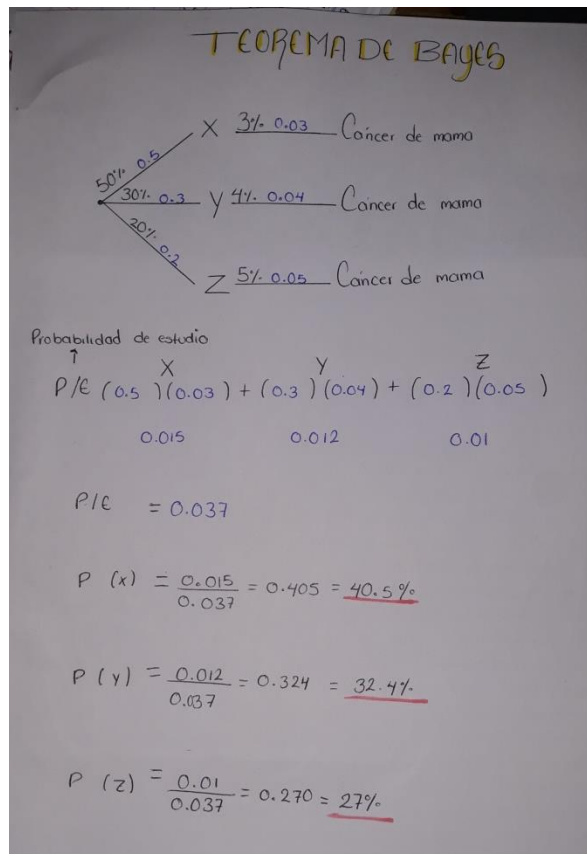 TEOREMA DE BAYES
50% 0.5 X 3% 0.03 Cáncer de mama
30% 0.3 Y 4% 0.04 Cáncer de mama
20% 0.2 Z 5% 0.05 Cáncer de mama
Probabilidad de estudio
↑ X Y Z
P/E (0.5 )(0.03) + (0.3 )(0.04) + (0.2 )(0.05 )
0.015 0.012 0.01
P/E = 0.037
P (x) = 0.015/0.037 = 0.405 = 40.5%
P (y) = 0.012/0.037 = 0.324 = 32.4%
P (z) = 0.01/0.037 = 0.270 = 27%